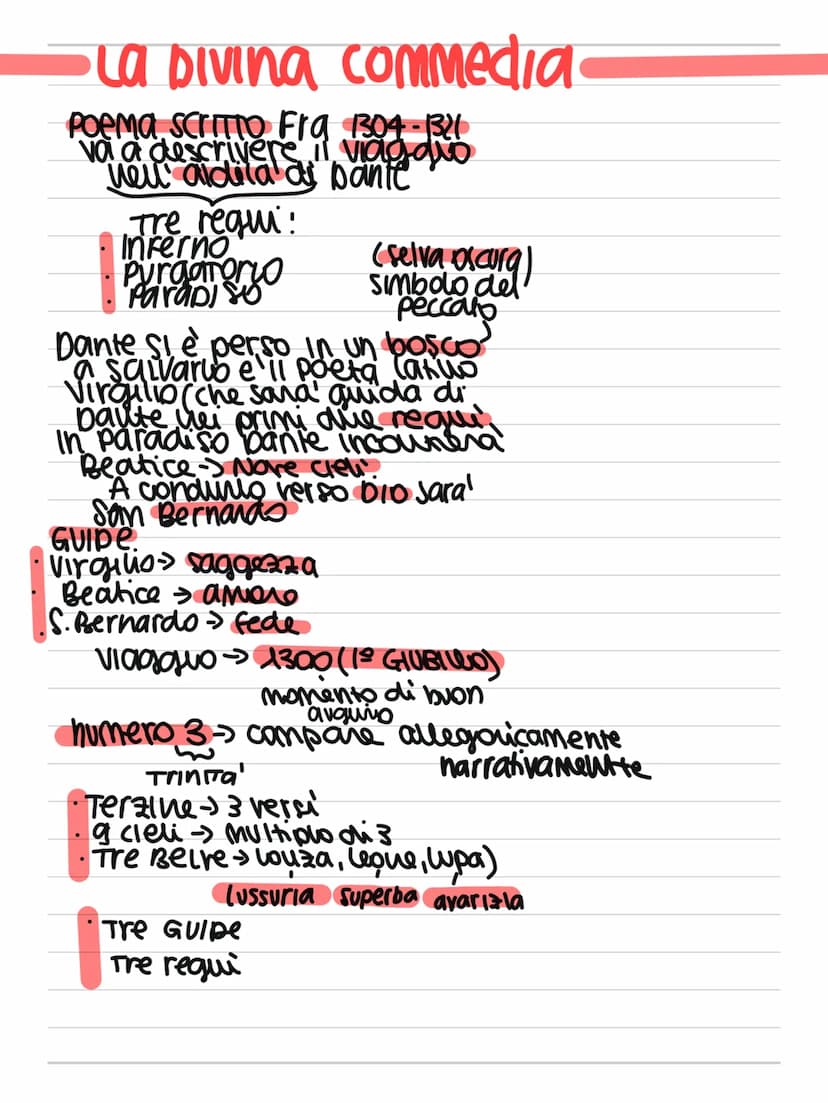 La Divina Commedia
POEMA SCRITTO Fra 1304-1321
va a descrivere il viaggio
nell'aldilà di Dante
Tre regni:
• INFERNO
• PURGATORIO
• PARADISO
(selva oscura)
simbolo del
peccato
Dante si è perso in un bosco
a salvarlo e' il poeta latino
Virgilio (che sara' guida di
Dante nei primi due regni
In paradiso Dante incontrera'
Beatice -> Nove cieli
A condurlo verso Dio sara'
San Bernardo
GUIDE
• Virgilio -> saggezza
• Beatice -> amore
• S. Bernardo -> fede
Viaggio -> 1300 (1º GIUBILEO)
momento di buon
augurio
numero 3 -> compare allegoricamente
narrativamente
TRINITA'
• Terzine -> 3 versi
• 9 cieli -> multiplo di 3
• Tre Belve -> lonza, leone, lupa)
lussuria superba avarizia
• Tre GUIDE
Tre regni